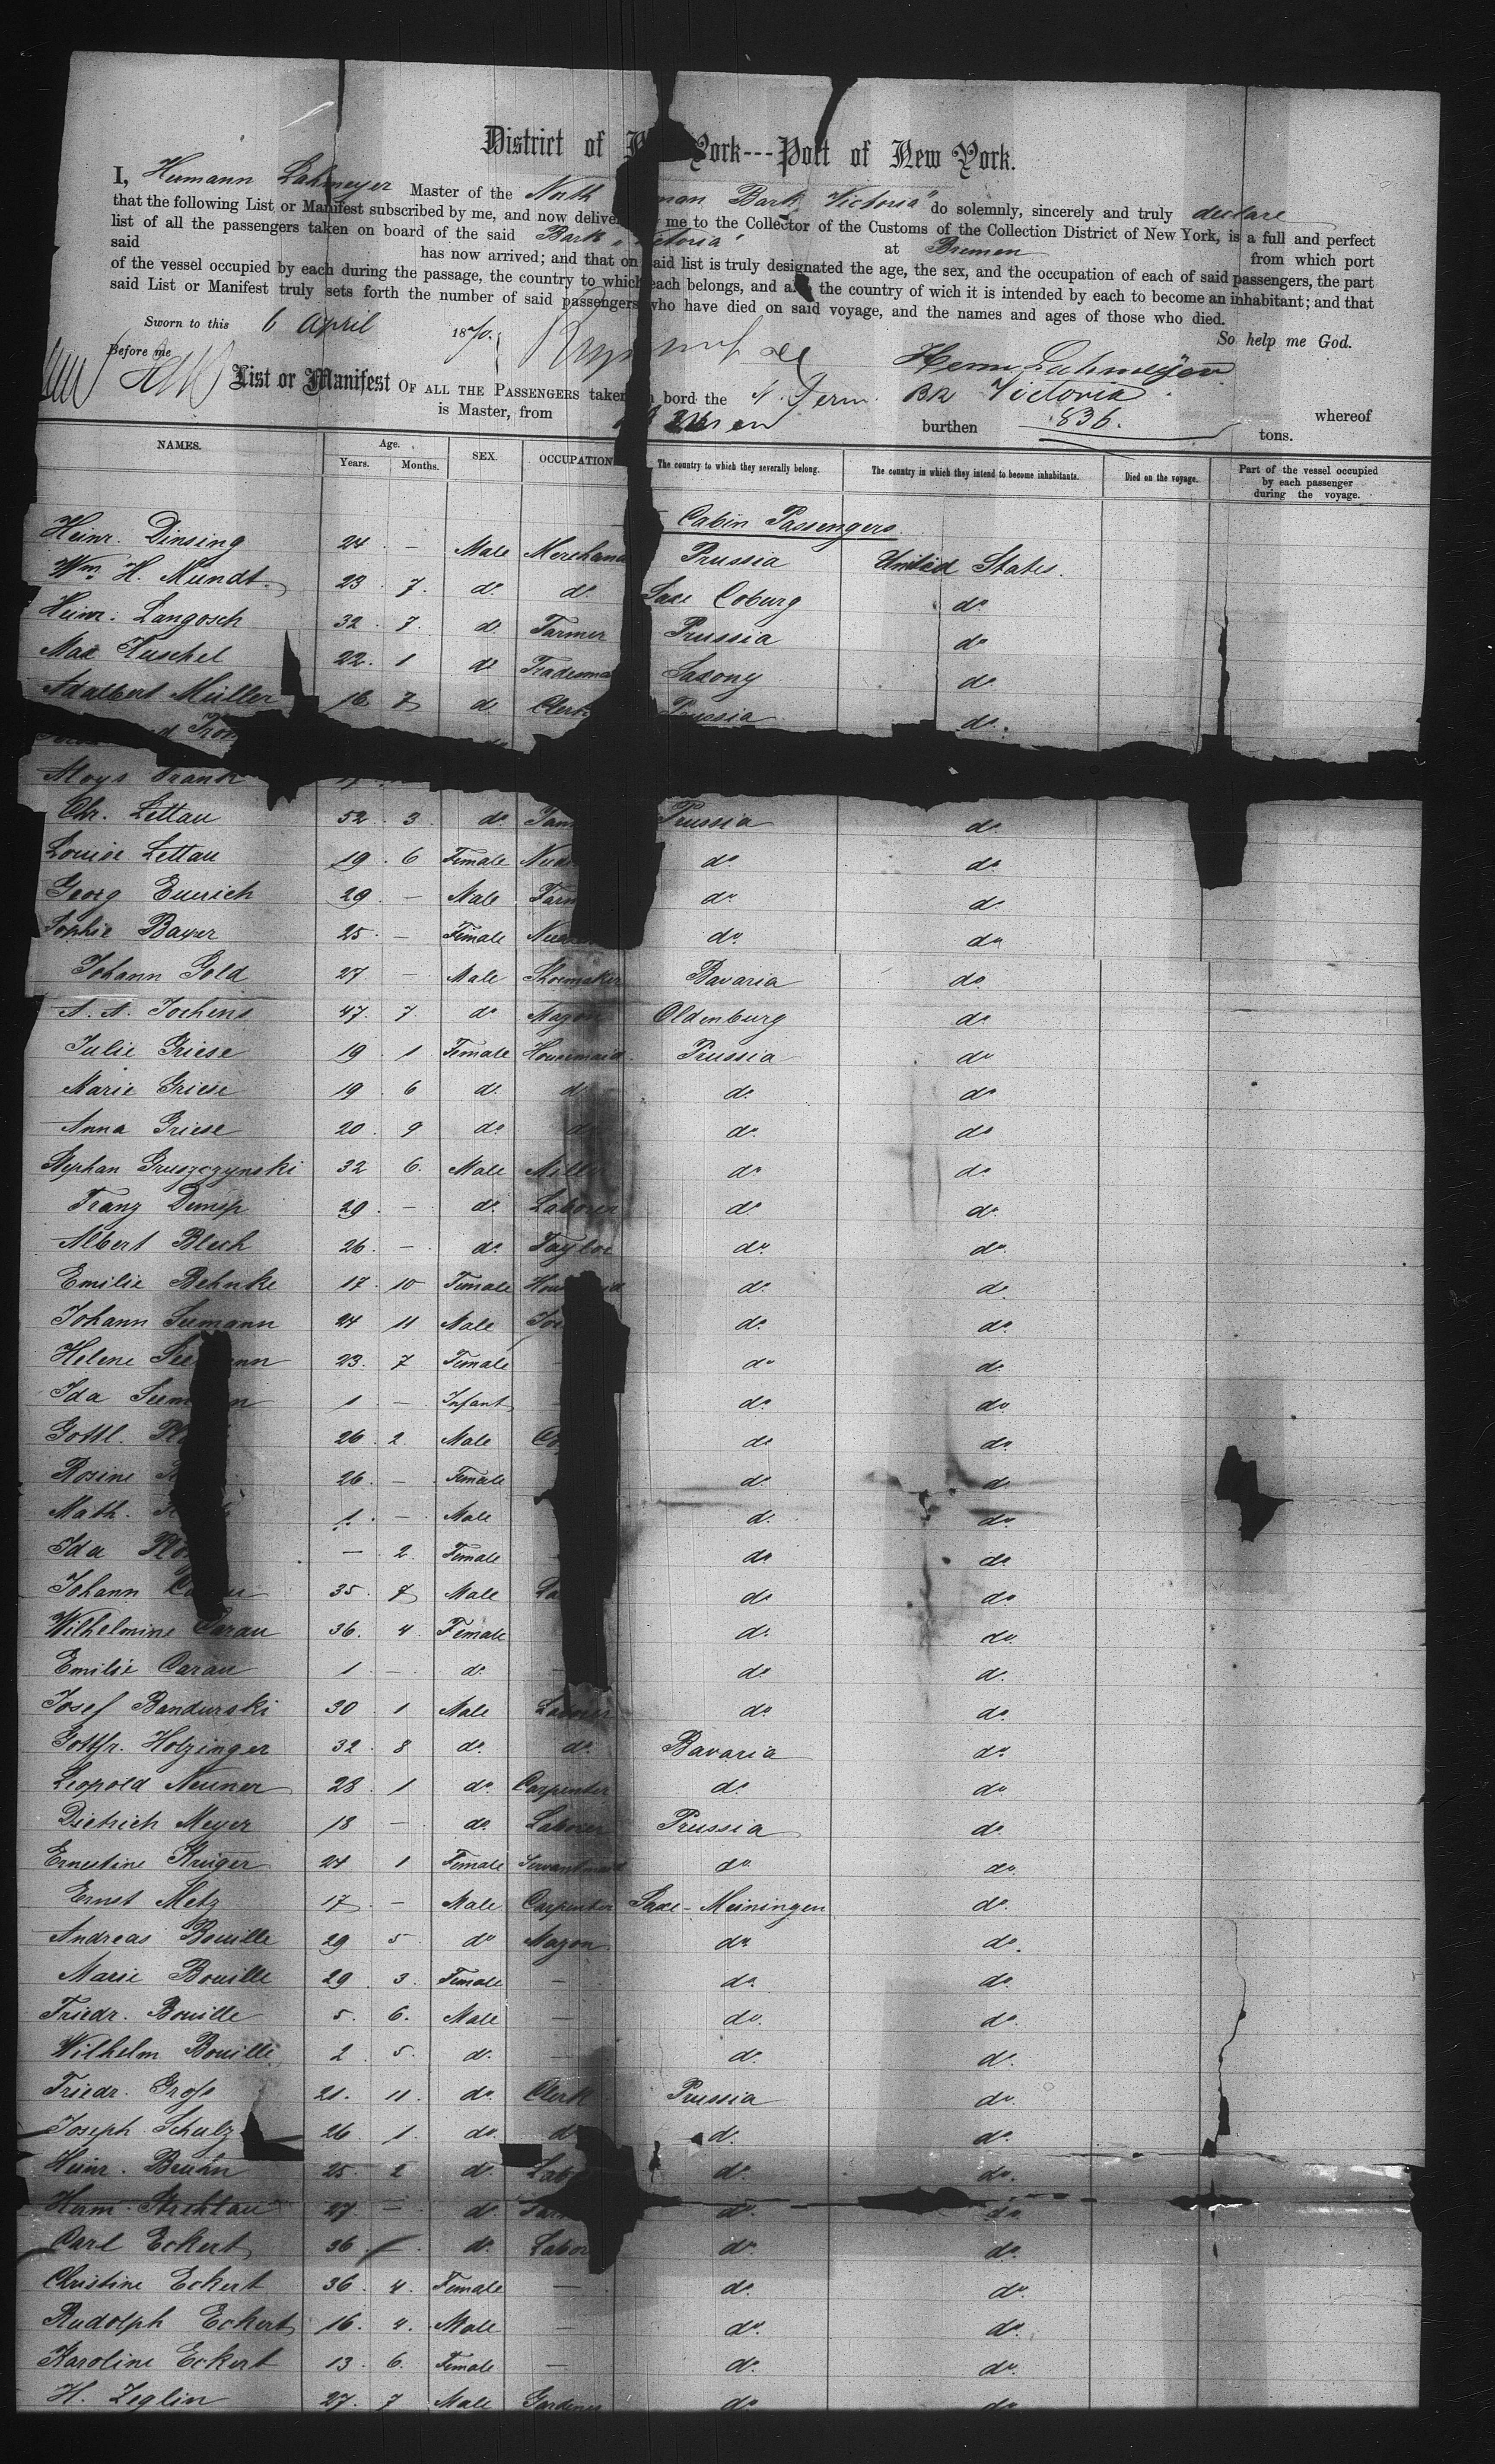 District of York---Port of New York.
I, Hermann Lahmeyer Master of the North Bark "Victoria" do solemnly, sincerely and truly declare
that the following List or Manifest subscribed by me, and now deliver me to the Collector of the Customs of the Collection District of New York, is a full and perfect
list of all the passengers taken on board of the said Bark "Victoria" at Bremen from which port
said has now arrived; and that on said list is truly designated the age, the sex, and the occupation of each of said passengers, the part
of the vessel occupied by each during the passage, the country to which each belongs, and also the country of wich it is intended by each to become an inhabitant; and that
said List or Manifest truly sets forth the number of said passengers who have died on said voyage, and the names and ages of those who died.
So help me God.
Sworn to this 6 April 1870.
Before me
Herm. Lahmeyer
List or Manifest OF ALL THE PASSENGERS taken bord the N. Germ. Bk Victoria whereof
is Master, from Bremen burthen 836. tons.
NAMES. Age. Years. Months. SEX. OCCUPATION The country to which they severally belong. The country in which they intend to become inhabitants. Died on the voyage. Part of the vessel occupied by each passenger during the voyage.
Cabin Passengers.
Heinr. Dinsing 24 - Male Merchan Prussia United States.
Wm. H. Mundt. 23 7. do. do. Saxe Coburg do
Heinr. Langosch 32 7 do Farmer Prussia do
Max Tuschel 22. 1 do Tradesma Saxony do.
Adalbert Müller 16 7 do Clerk Prussia do.
Aloys Frank
Chr. Lettau 52. 3. do. Prussia do.
Louise Lettau 19. 6 Female do. do.
Georg Euerich 29. - Male Farm do. do.
Sophie Bayer 25. - Female do. do
Johann Gold 27 - Male Shoemaker Bavaria do.
A. A. Jochens 47. 7. do. Mazon Oldenburg do.
Julie Griese 19. 1 Female Housemaid. Prussia do
Marie Griese 19. 6 do. do do. do
Anna Griese 20. 9 do. do do. do
Stephan Gruszczynski 32 6. Male Miller do. do.
Franz Demsp 29. - do. Laborer do. do.
Albert Blech 26. - do. Taylor do. do.
Emilie Behnke 17. 10 Female do. do.
Johann Seemann 24 11 Male do. do.
Helene See nn 23. 7 Female do do.
Ida Seem n 1 - Infant do. do.
Gottl. 26. 2. Male do do.
Rosine 26. - Female do. do.
Math. 1. - Male do. do.
Ida - 2. Female do do.
Johann 35. 7 Male La do. do.
Wilhelmine Carau 36. 4. Female do. do.
Emilie Carau 1 - do. do. do.
Josef Bandurski 30 1 Male Laborer do. do.
Gottfr. Holzinger 32. 8 do. do. Bavaria do.
Leopold Neuner 28. 1 do. Carpenter do. do.
Dietrich Meyer 18 - do. Laborer Prussia do.
Ernestine Krüger 24 1 Female Servantmaid do. do.
Ernst Metz 17 - Male Carpenter Saxe-Meiningen do.
Andreas Bouille 29 5 do Mazon do. do.
Marie Bouille 29. 3. Female - do. do.
Friedr. Bouille 5. 6. Male - do. do.
Wilhelm Bouille 2. 5. do. - do. do.
Friedr. Groß 21. 11. do. Clerk Prussia do.
Joseph Schulz 26. 1. do. do do. do.
Heinr. Bruhn 25. 2 do. Lab do. do.
Herm. Strehlau 27. - do. do. do.
Carl Eckert 36. - do. Labor do. do.
Christine Eckert 36. 4. Female - do. do.
Rudolph Eckert 16. 4. Male - do. do.
Karoline Eckert 13. 6. Female - do. do.
H. Zeglin 27. 7 Male Gardener do. do.